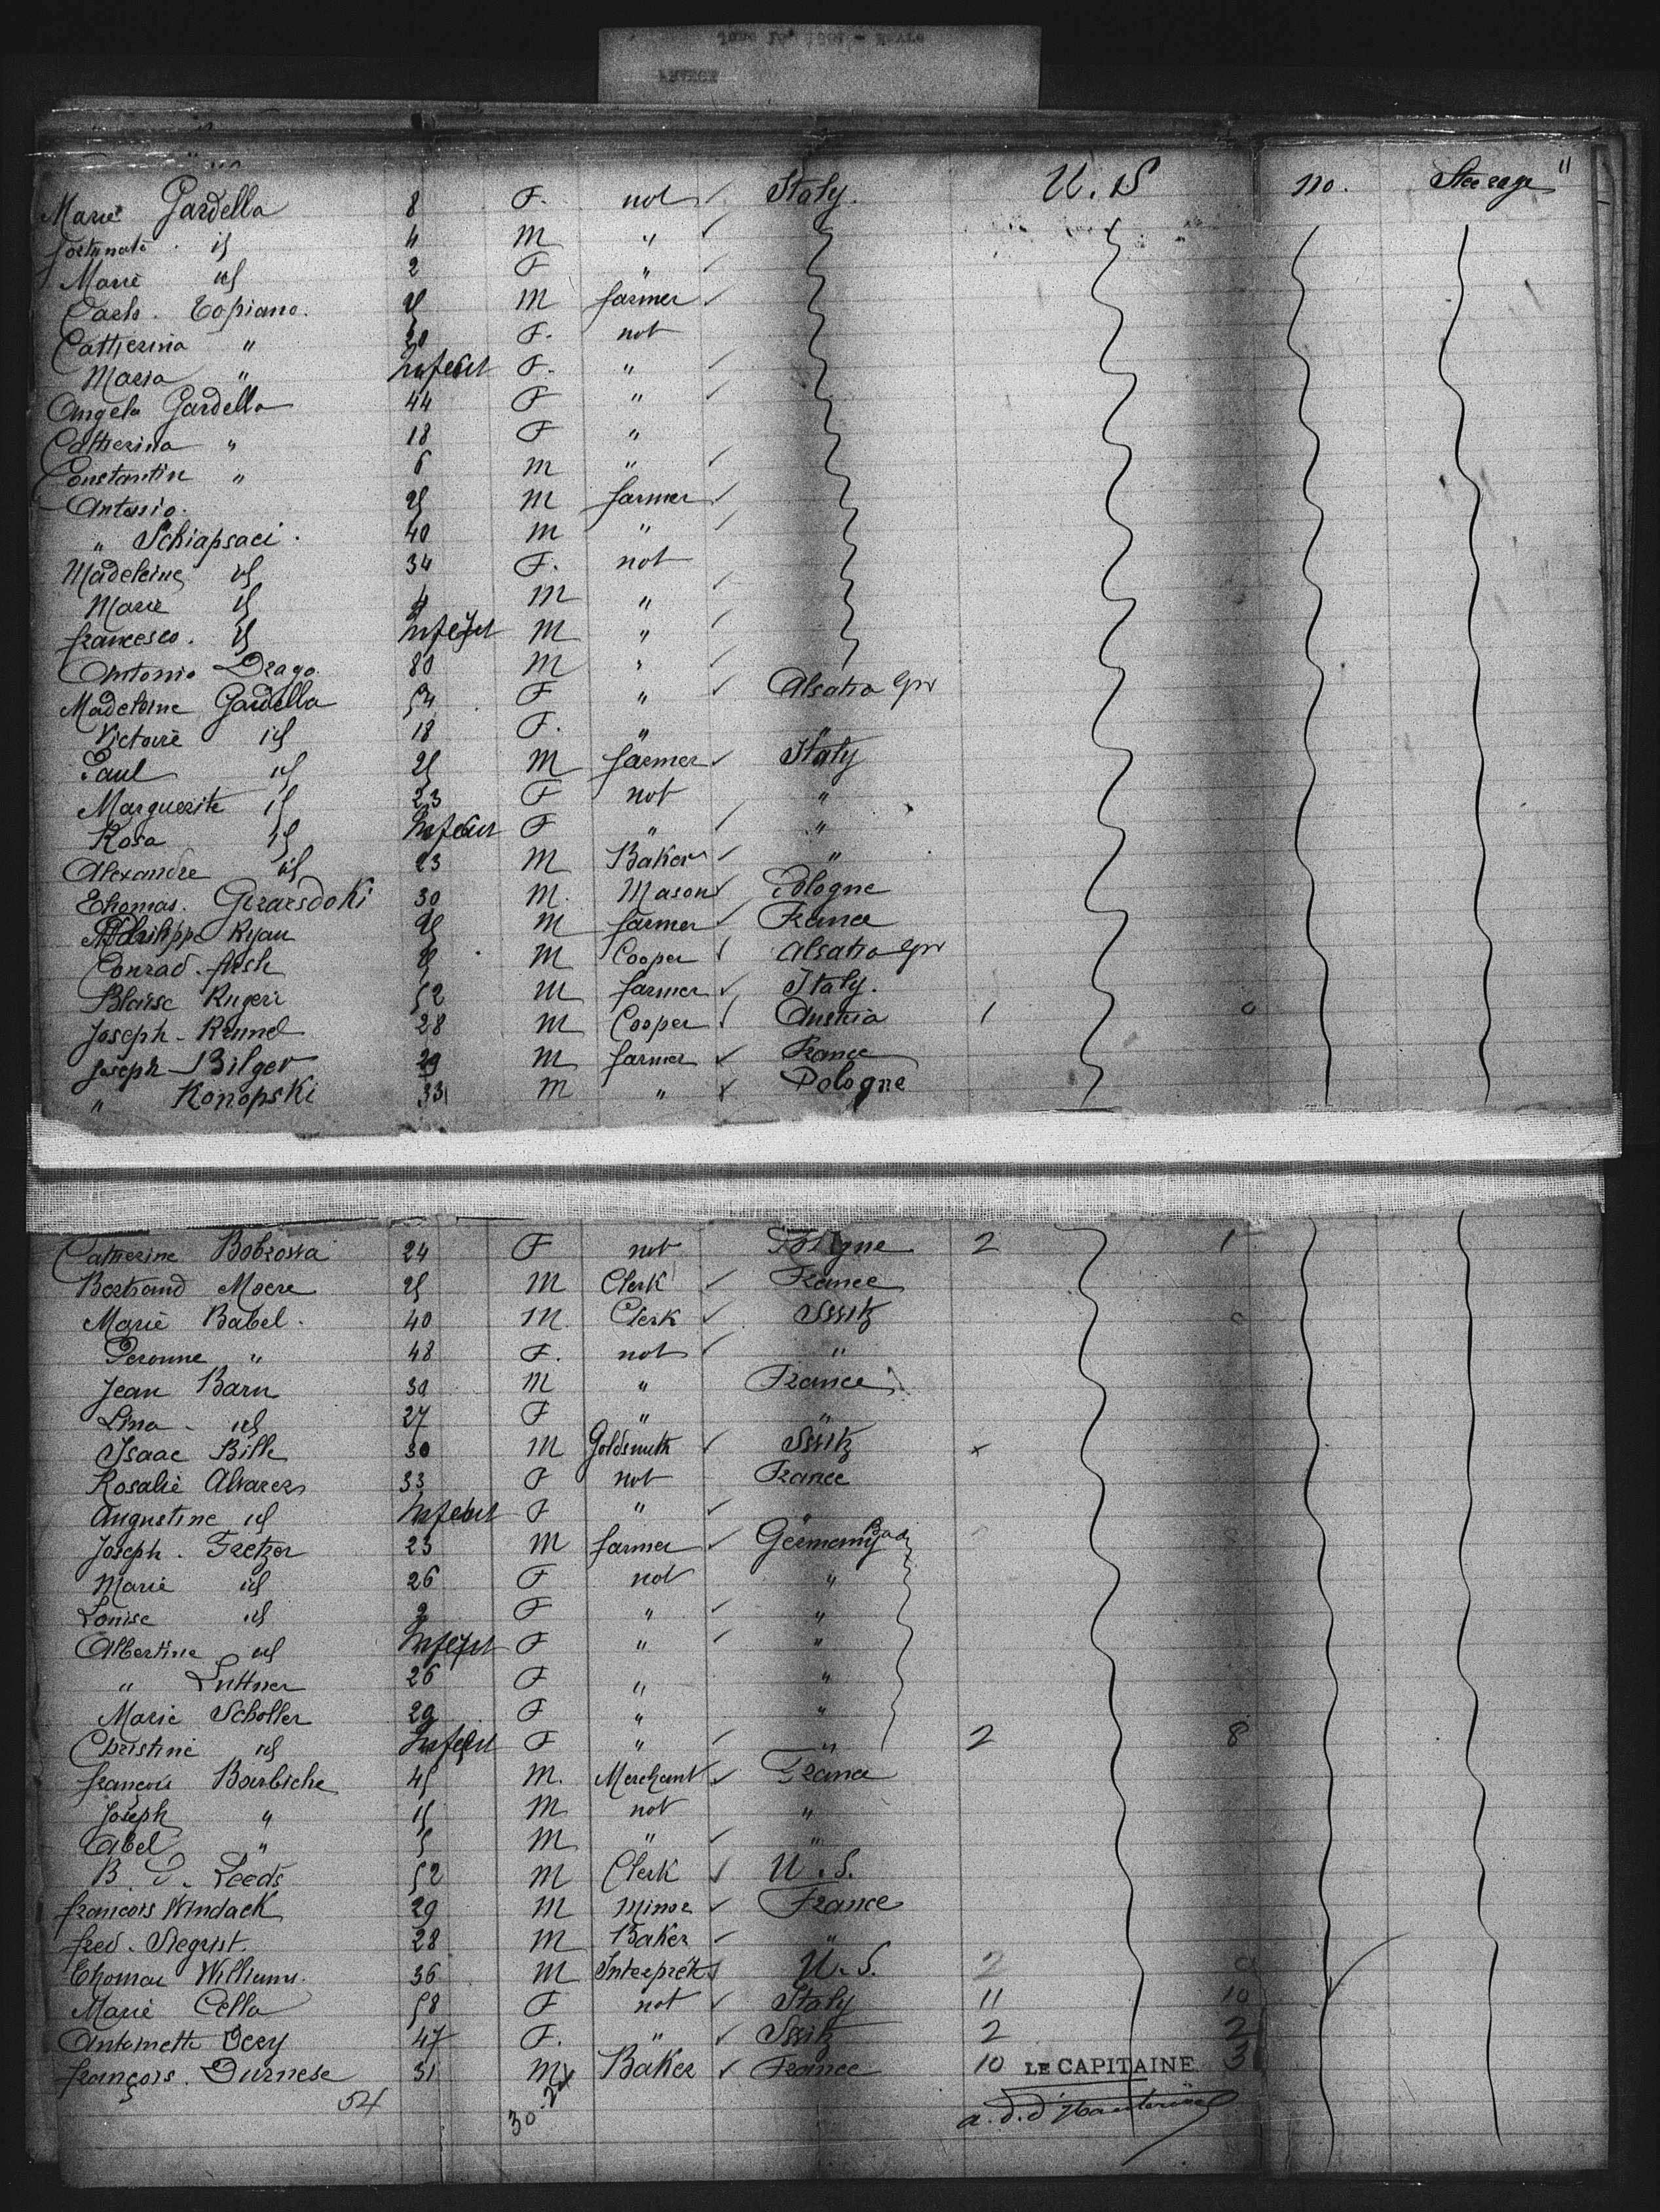 Marie Gardella 8 F. not Italy. U.S no. Steerage "
Fortunato id 4 M "
Marie id 2 F "
Carlo. Topiano. M farmer
Catherina " 20 F. not
Maria " Infant F. "
Angela Gardella 44 F "
Catherina " 18 F "
Constantin " 6 m "
Antonio. 25 M farmer
" Schiapsaci. 40 m "
Madeleine id 34 F. not
Marie id 4 M "
francesco. id Infant M "
Antonio Drago. 80 M "
Madeleine Gardella 54 F " Alsatia
Victoire id 18 F. " "
Paul id 25 M farmer Italy
Marguerite id 23 F not "
Rosa id Infant F " "
Alexandre id 23 M Baker "
Thomas. 30 M. Mason Pologne
Philippe Ryan 25 M farmer France
Conrad. M Cooper Alsatia
Blaise Rugeri 52 M farmer Italy.
Joseph 28 M Cooper Austria 1 0
Joseph Bilger 29 M farmer France
" Konopski 33 M " Pologne
Catherine Bobrowa 24 F not 2 1
Bertrand Moere 25 M Clerk France
Marie Babel. 40 M. Clerk Switz
Peronne " 48 F. not "
Jean Barn 30 M " France
Lina id 27 F " "
Isaac Bille 30 M Goldsmith Switz x
Rosalie Alvarez 33 F not France
Augustine id Infant F " "
Joseph. Fretzer 23 M farmer Germany Bad
Marie id 26 F not "
Louise id 2 F " "
Albertine id Infant F " "
" Luttner 26 F " "
Marie Scholler 29 F " "
Christine id Infant F " " 2 8
françois Barbiche 45 M. Merchant France
Joseph " 15 M not "
Abel " 5 M " "
B. Leeds 52 M Clerk U.S.
francois Windack 29 M Miner France
fred. Siegrist. 28 M Baker "
Thomas Williams. 36 M Interpret U.S. 2 0
Marie Cella 58 F not Italy 11 10
Antoinette Dery 47 F. " Switz 2 2
françois. Durnese 31 M Baker France 10 LE CAPITAINE 3
54 30